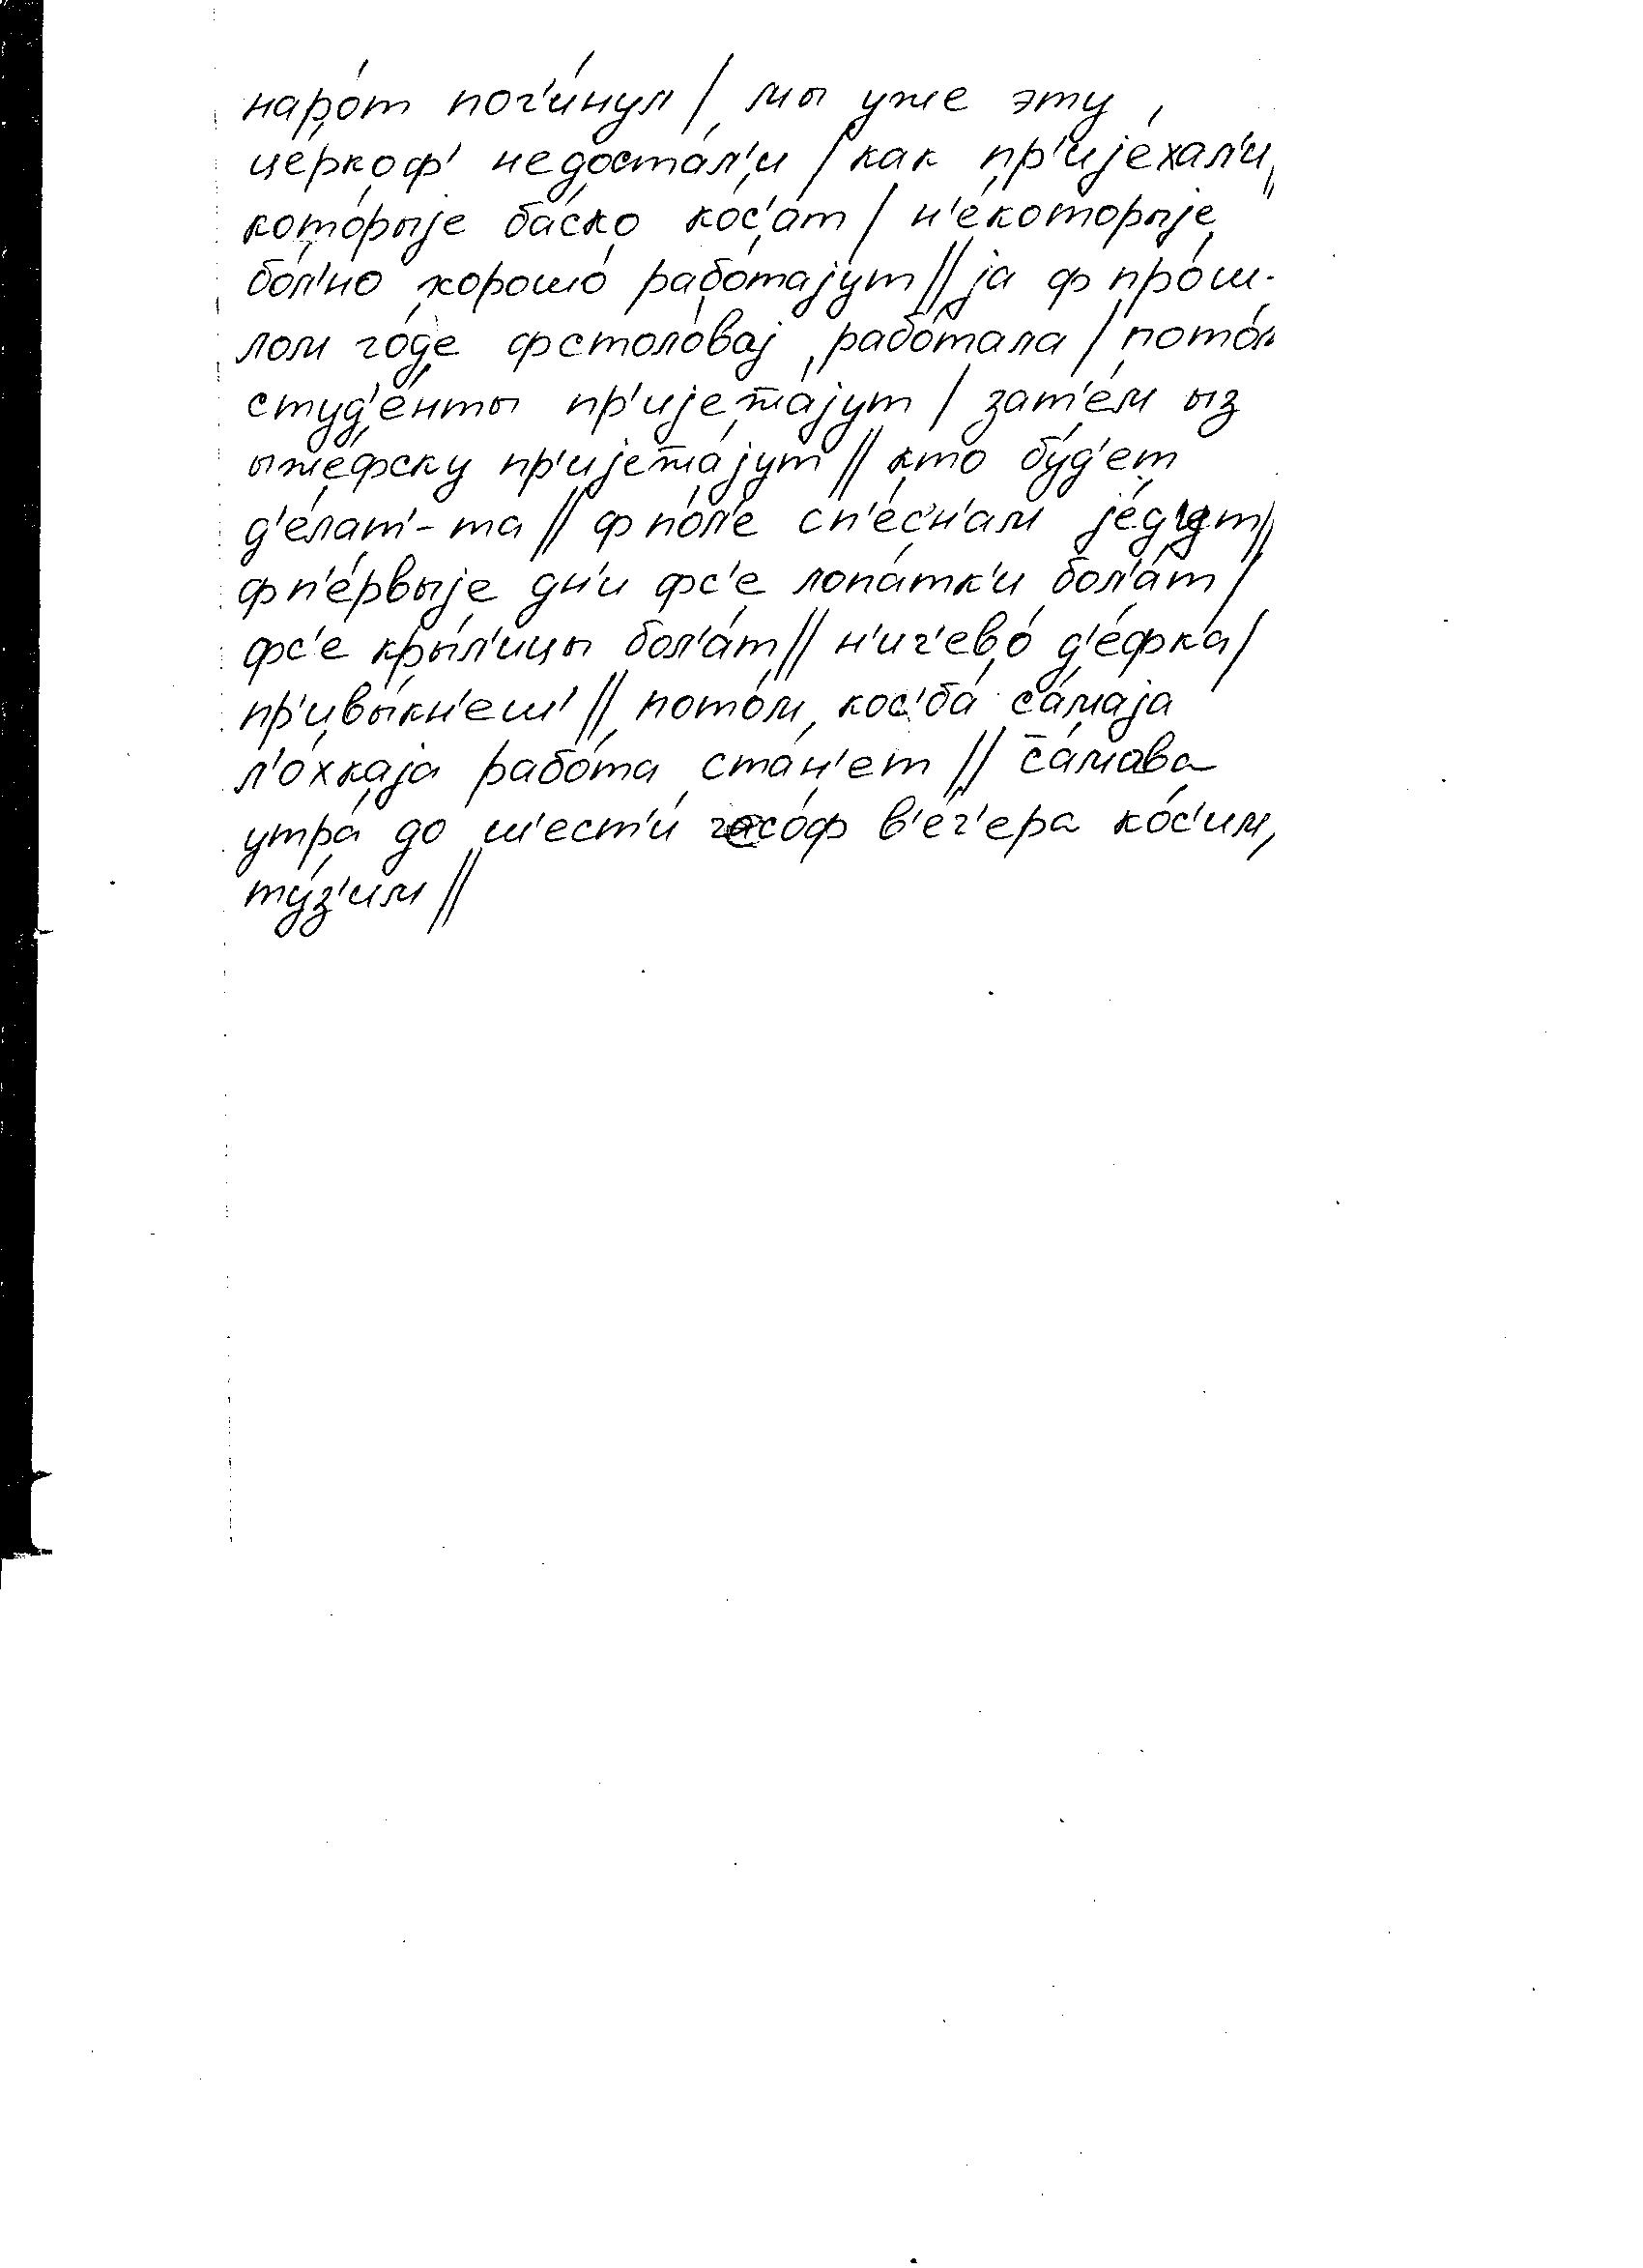 наро́т пог'и́нул / мы уже эту
це́ркоф' недоста́л'и / как пр'ије́хал'и //
кото́рыје ба́ско кос'а́т / н'е́которыје
бол'но хорошо́ рабо́тајут // ја ф про́ш-
лом го́де фстоло́вај рабо́тала / пото́м
студ'е́нты пр'ијет̄а́јут / зат'е́м ыз
ыже́фску пр'ијет̄а́јут // кто бу́д'ет
д'е́лат'-та // ф по́л'е с п'е́с'н'ам је́дут //
ф п'е́рвыје дн'и фс'е лопа́тк'и бол'а́т /
фс'е кры́л'ицы бол'а́т // н'ич'ево́ д'е́фка /
пр'ивы́кн'еш' // пото́м кос'ба́ са́маја
л'о́хкаја рабо́та ста́н'ет // с̄а́мова
утра́ до ш'ест'и́ ч'асо́ф в'е́ч'ера ко́с'им,
ту́з'им //